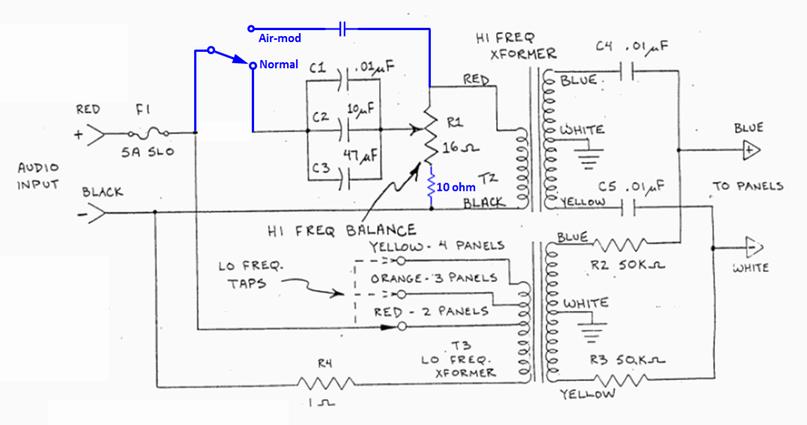 Air-mod
Normal
HI FREQ
XFORMER
C4 .01µF
C1 .01µF
RED
BLUE
C2 10µF
R1
16Ω
WHITE
RED
+
F1
5A SLO
BLUE
+
C3 47µF
AUDIO
INPUT
BLACK
-
10 ohm
T2
BLACK
YELLOW
C5 .01µF
TO PANELS
HI FREQ BALANCE
YELLOW - 4 PANELS
BLUE
-
WHITE
LO FREQ.
TAPS
ORANGE - 3 PANELS
R2 50KΩ
RED - 2 PANELS
WHITE
T3
LO FREQ.
XFORMER
R4
1Ω
R3 50KΩ
YELLOW